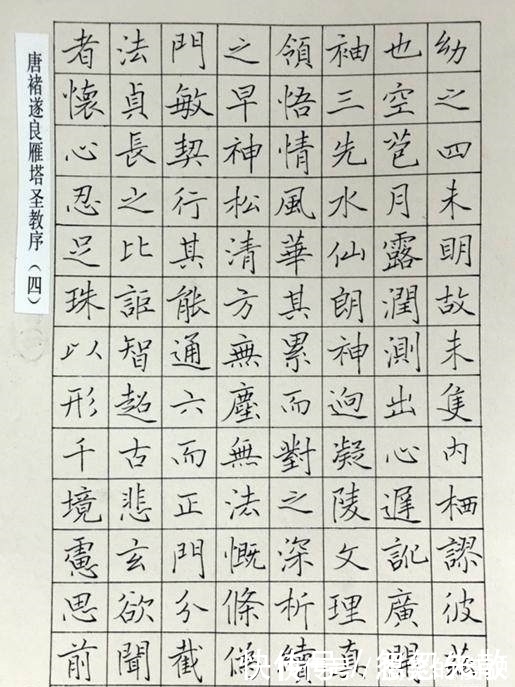 唐褚遂良雁塔圣教序（四）
者法門之領袖也幼
懷貞敏早悟三空之
心長契神情先苞四
忍之行松風水月未
足比其清華仙露明
珠詎能方其朗潤故
以智通無累神測未
形超六塵而迥出隻
千古而無對凝心內
境悲正法之陵遲栖
慮玄門慨深文訛謬
思欲分條析理廣彼
前聞截續真
快传号